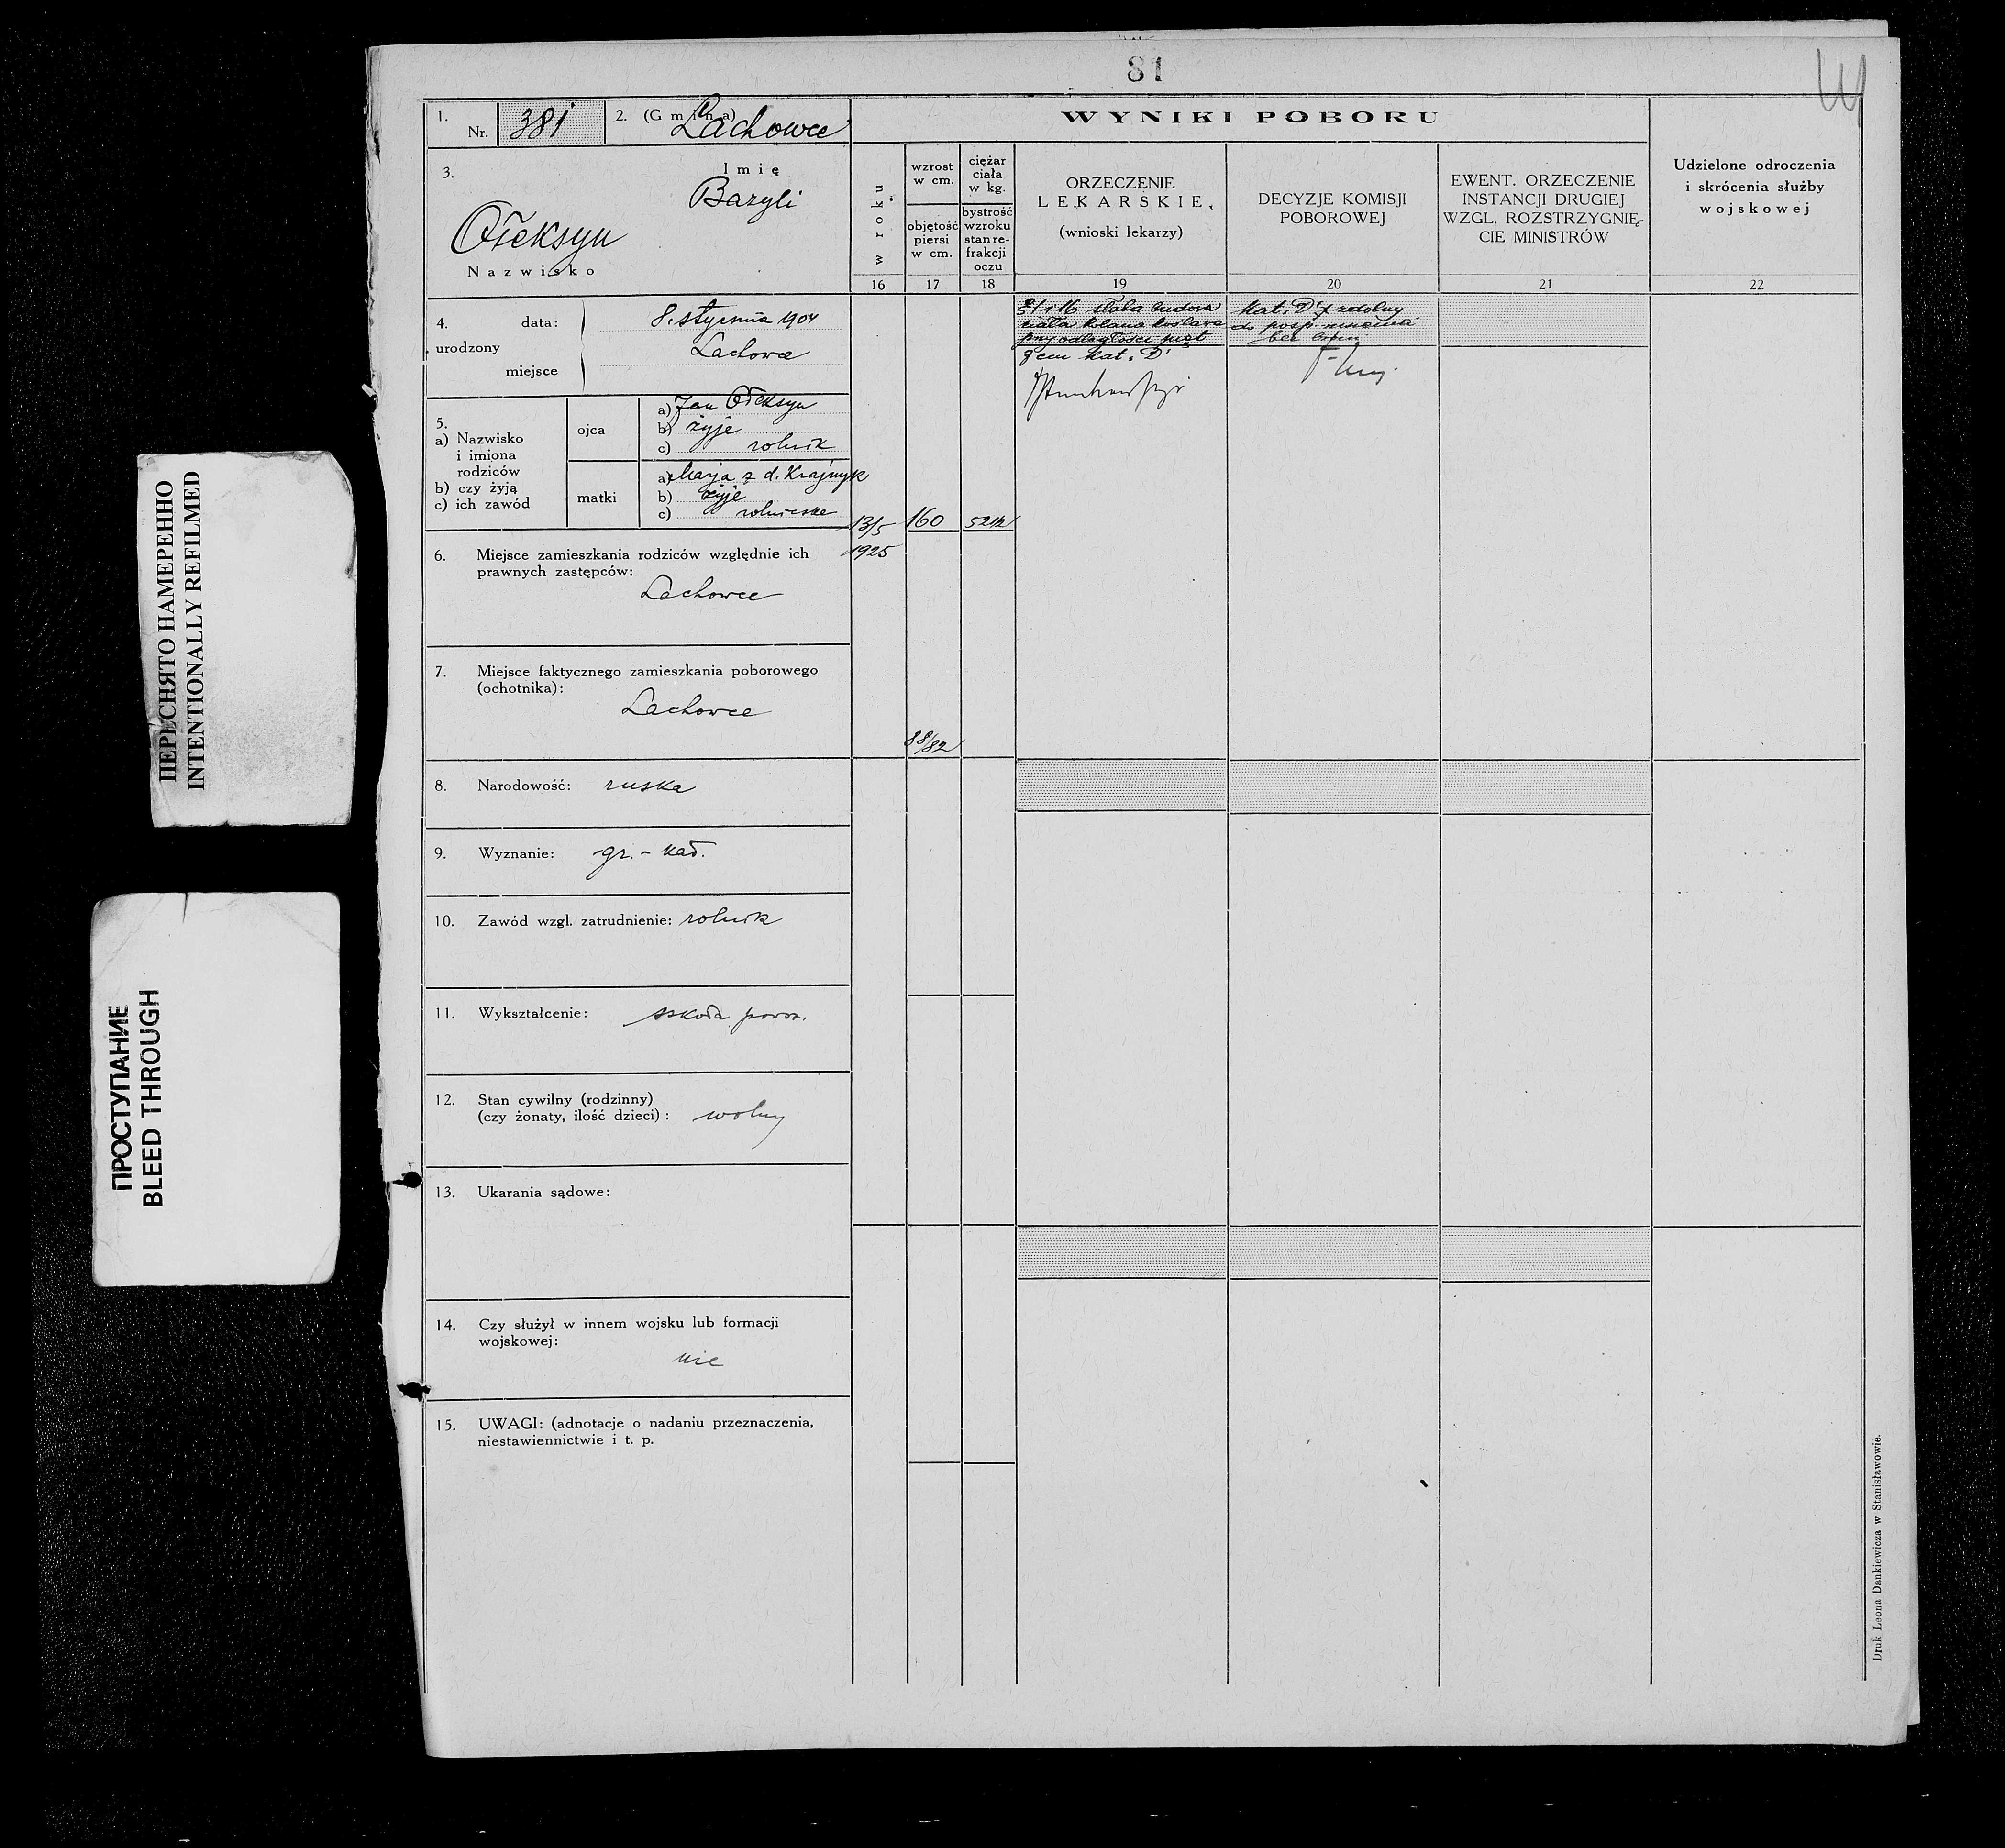 81
1. Nr. 381
2. (Gmina) Lachowce
WYNIKI POBORU
3. Imię
Bazyli
Ołeksyn
Nazwisko
w roku
wzrost
w cm.
objętość
piersi
w cm.
ciężar
ciała
w kg.
bystrość
wzroku
stan re-
frakcji
oczu
ORZECZENIE
LEKARSKIE,
(wnioski lekarzy)
DECYZJE KOMISJI
POBOROWEJ
EWENT. ORZECZENIE
INSTANCJI DRUGIEJ
WZGL. ROZSTRZYGNIĘ-
CIE MINISTRÓW
Udzielone odroczenia
i skrócenia służby
wojskowej
16 17 18 19 20 21 22
4. urodzony
data: 8. stycznia 1904
miejsce Lachowce
słaba budowa
ciała kolana koślawe
przy odległości pięt
9 cm kat. D'
Kat. D' zdolny
do posp. ruszenia
bez broni
5.
a) Nazwisko
i imiona
rodziców
b) czy żyją
c) ich zawód
ojca
a) Jan Ołeksyn
b) żyje
c) rolnik
matki
a) Marja z d. Krajnyk
b) żyje
c) rolniczka
13/5
1925
160
52 1/2
6. Miejsce zamieszkania rodziców względnie ich
prawnych zastępców:
Lachowce
7. Miejsce faktycznego zamieszkania poborowego
(ochotnika):
Lachowce
88/82
8. Narodowość: ruska
9. Wyznanie: gr. - kat.
10. Zawód wzgl. zatrudnienie: rolnik
11. Wykształcenie: szkoła powsz.
12. Stan cywilny (rodzinny)
(czy żonaty, ilość dzieci): wolny
13. Ukarania sądowe:
14. Czy służył w innem wojsku lub formacji
wojskowej:
nie
15. UWAGI: (adnotacje o nadaniu przeznaczenia,
niestawiennictwie i t. p.
Druk Leona Dankiewicza w Stanisławowie.
ПЕРЕСНЯТО НАМЕРЕННО
INTENTIONALLY REFILMED
ПРОСТУПАНИЕ
BLEED THROUGH